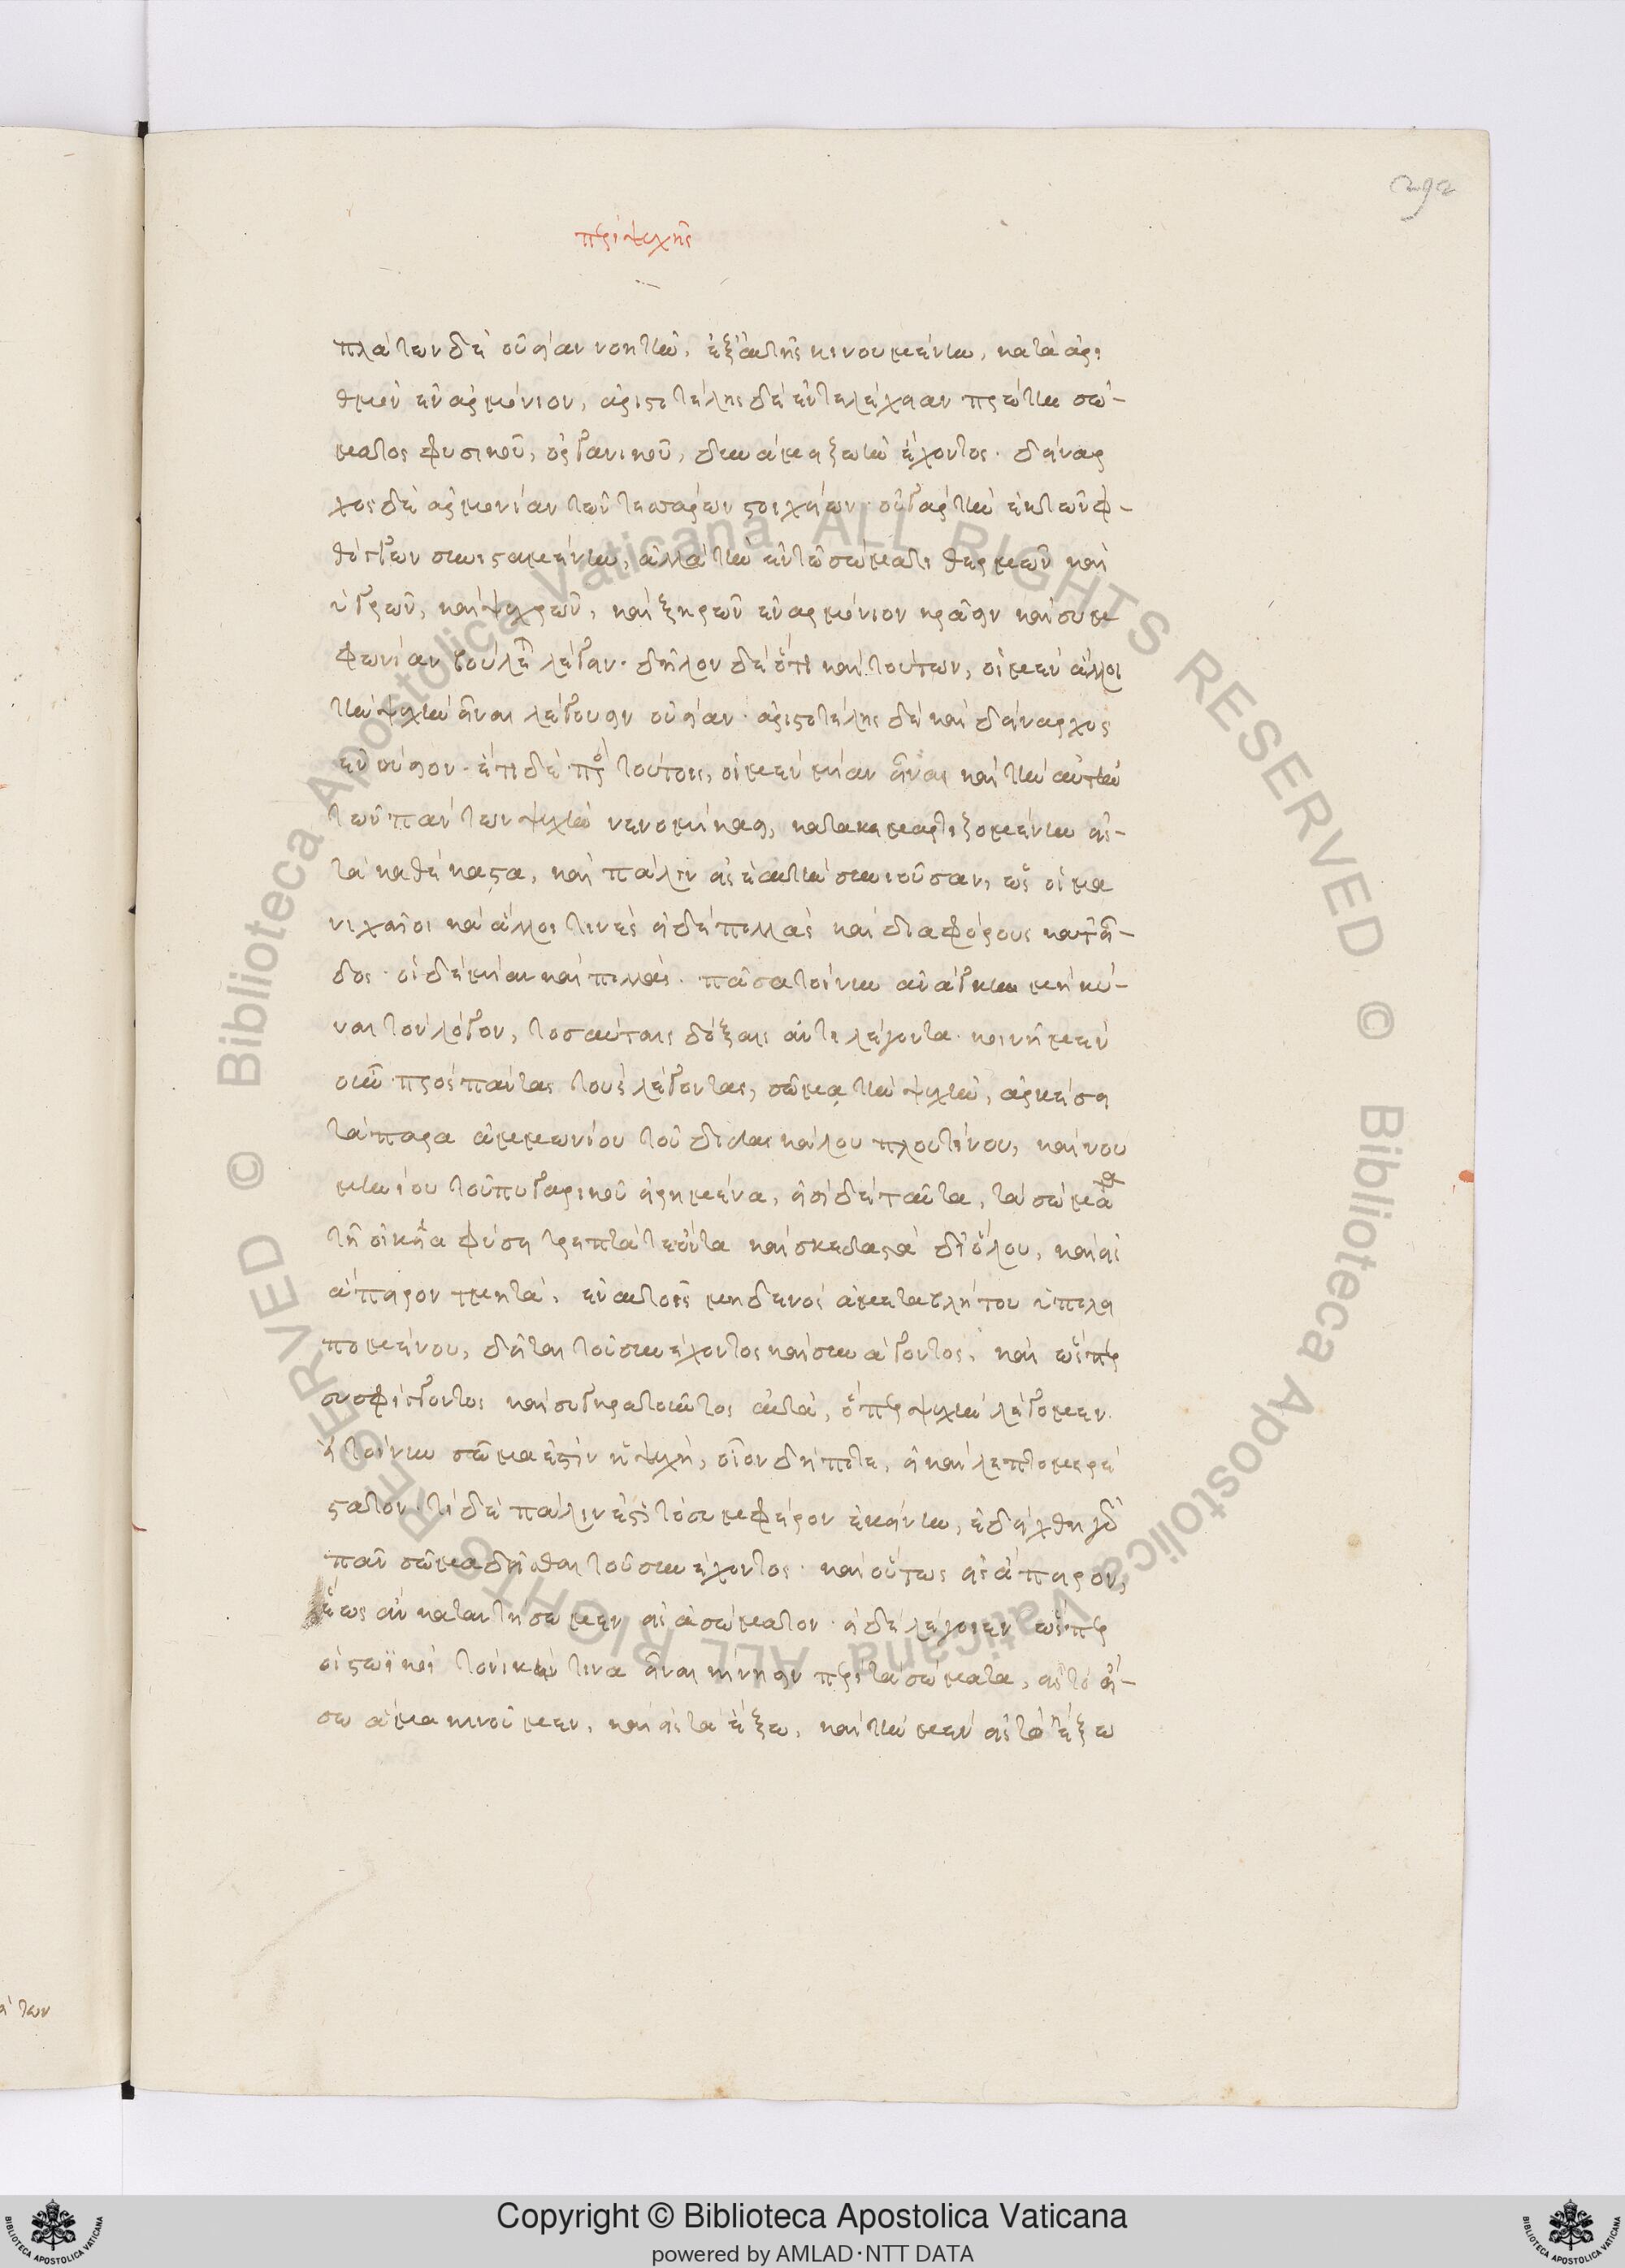 292
περὶ ψυχῆς
πλάτων δὲ οὐσίαν νοητὴν, ἐξ ἑαυτῆς κινουμένην, κατὰ ἀρι
θμὸν ἐναρμόνιον, ἀριστοτέλης δὲ ἐντελέχειαν πρώτην σώ-
ματος φυσικοῦ, ὀργανικοῦ, δυνάμει ζωὴν ἔχοντος. δείναρ
χος δὲ ἁρμονίαν τῶν τεσσάρων στοιχείων· οὐ γὰρ τὴν ἐκ τῶν φ-
θόγγων συνισταμένην, ἀλλὰ τὴν ἐν τῷ σώματι θερμῶν καὶ
ὑγρῶν, καὶ ψυχρῶν, καὶ ξηρῶν ἐναρμόνιον κρᾶσιν καὶ συμ
φωνίαν βούλεται λέγειν. δῆλον δὲ ὅτι καὶ τούτων, οἱ μὲν ἄλλοι
τὴν ψυχὴν εἶναι λέγουσιν οὐσίαν· ἀριστοτέλης δὲ καὶ δείναρχος
ἀνούσιον. ἔτι δὲ πρὸς τούτοις, οἱ μὲν μίαν εἶναι καὶ τὴν αὐτὴν
τῶν πάντων ψυχὴν νενομίκασι, κατακερματιζομένην εἰ-
τὰ καθέκαστα, καὶ πάλιν εἰς ἑαυτὴν συνιοῦσαν, ὡς οἱ μα
νιχαῖοι καὶ ἄλλοι τινές· οἱ δὲ πολλὰς καὶ διαφόρους κατ' εἶ-
δος· οἱ δὲ μίαν καὶ πολλάς. πᾶσα τοίνυν ἀνάγκη μηκύ-
ναι τὸν λόγον, τοσαύταις δόξαις ἀντιλέγοντα. κοινῇ μὲν
οὖν πρὸς πάντας τοὺς λέγοντας, σῶμα τὴν ψυχὴν, ἀρκέσει
τὰ παρὰ ἀμμωνίου τοῦ διδασκάλου πλωτίνου, καὶ νου
μηνίου τοῦ πυθαγορικοῦ εἰρημένα, εἰσὶ δὲ ταῦτα, τὰ σώματα
τῇ οἰκείᾳ φύσει τρεπτὰ ὄντα καὶ σκεδαστὰ δι' ὅλου, καὶ εἰς
ἄπειρον τμητὰ, ἐν αὐτοῖς μηδενὸς ἀμεταβλήτου ὑπολει
πομένου, δεῖται τοῦ συνέχοντος καὶ συνάγοντος, καὶ ὥσπερ
συσφίγγοντος καὶ συγκρατοῦντος αὐτὰ, ὅπερ ψυχὴν λέγομεν.
εἰ τοίνυν σῶμα ἐστὶν ἡ ψυχὴ, οἷον δήποτε, εἰ καὶ λεπτομερέ
στατον· τί δὲ πάλιν ἐστὶ τὸ συμφέρον ἐκείνην, ἐδείχθη γὰρ
πᾶν σῶμα δεῖσθαι τοῦ συνέχοντος· καὶ οὕτως εἰς ἄπειρον,
ἕως ἂν καταντήσωμεν εἰς ἀσώματον. εἰ δὲ λέγοιεν ὥσπερ
οἱ στωϊκοὶ τονικήν τινα εἶναι κίνησιν περὶ τὰ σώματα, εἰς τὸ εἴ-
σω ἅμα κινοῦμεν, καὶ εἰς τὰ ἔξω, καὶ τὴν μὲν εἰς τὸ ἔξω